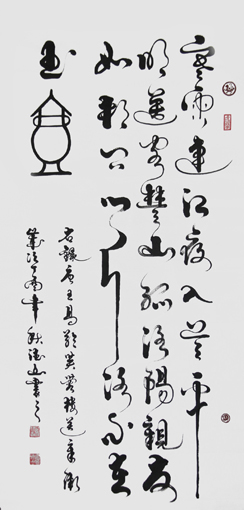 寒雨連江夜入吳平
明送客楚山孤洛陽親友
如相問一片冰心在
玉壺
右錄唐王昌齡芙蓉樓送辛漸
歲次年秋山書之